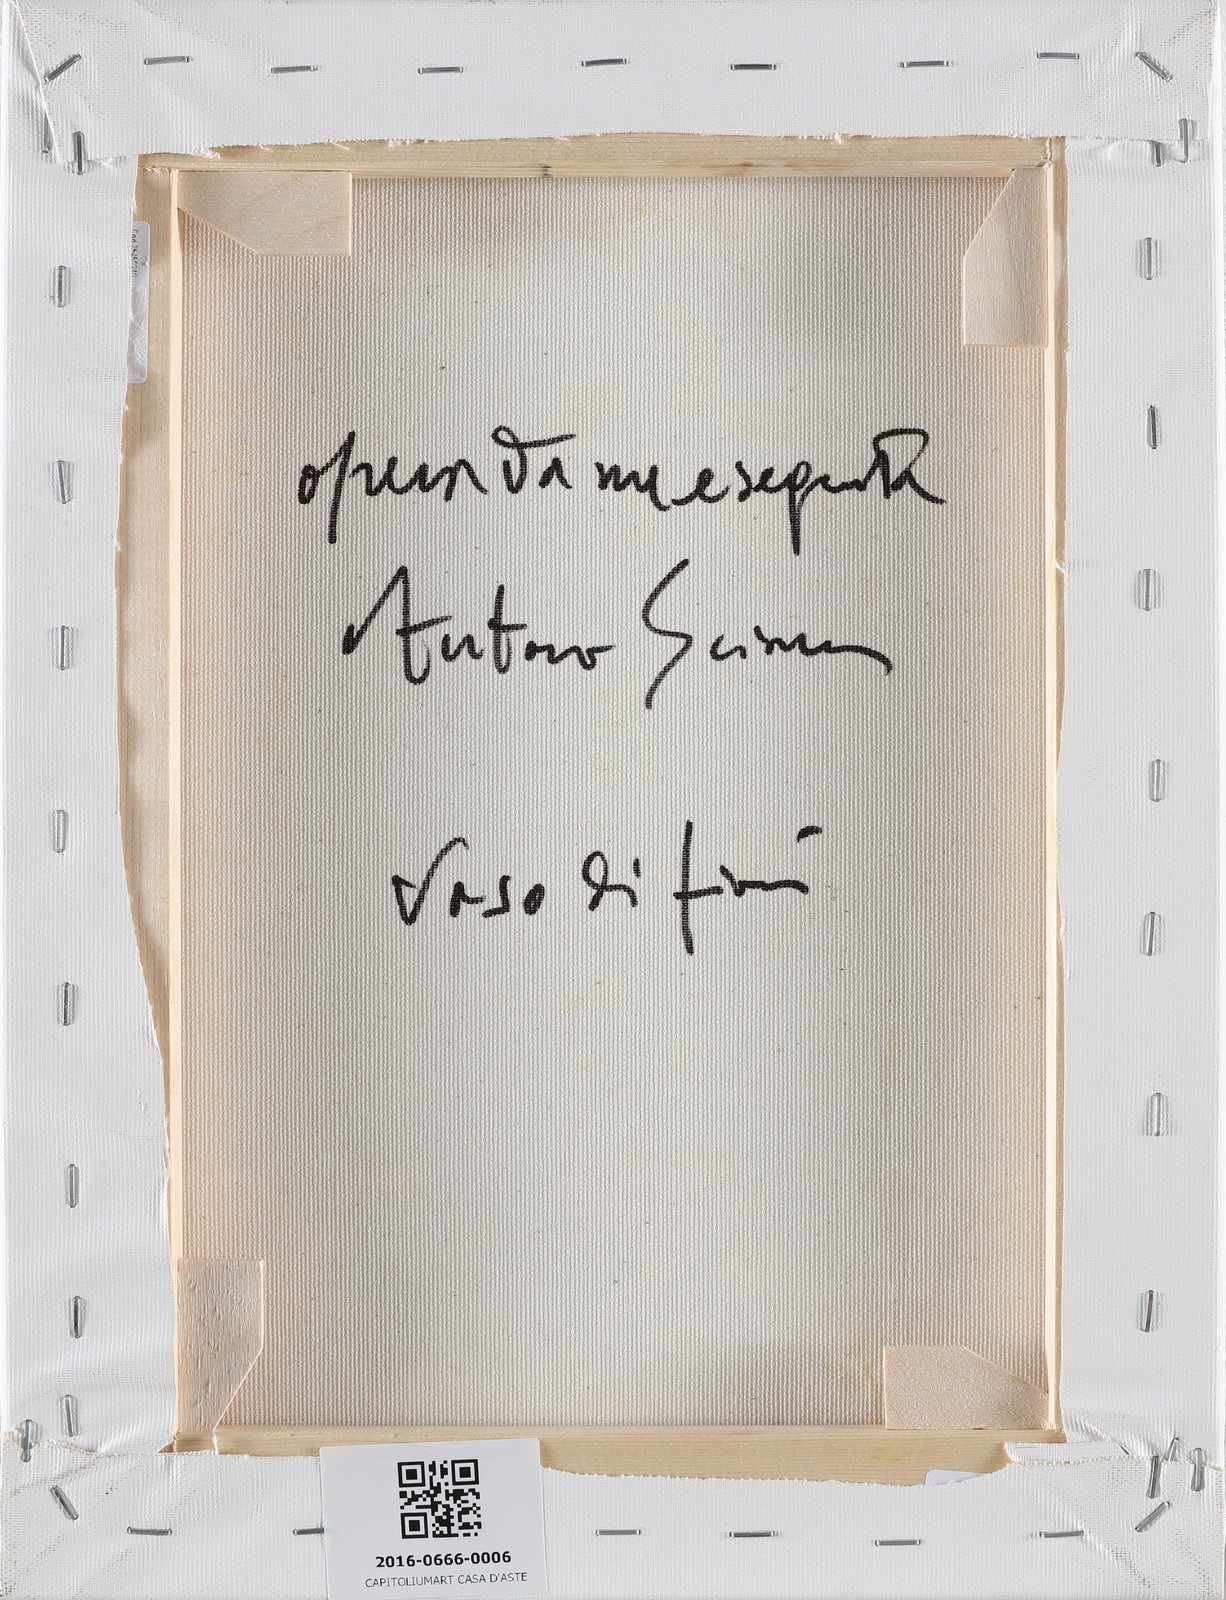 opera da me eseguita
Antonio
Vaso di fiori
2016-0666-0006
CAPITOLIUMART CASA D'ASTE